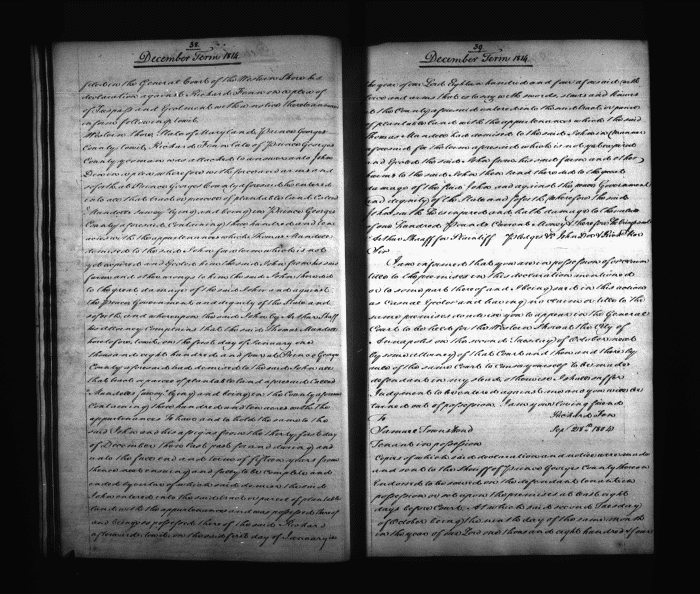 38
December Term 1814
filed in the General Court of the Western Shore his
declaration against Richard Fenn in a plea of
of Trespass and Ejectment with a notice thereto annexed
in form following towit
Western Shore State of Maryland Prince Georges
County towit Richard Fenn late of Prince Georges
County yeoman was attached to answer unto John
Denn in a plea wherefore with force and arms and
so forth at Prince Georges County aforesaid he entered
into all that tract or parcel of plantable land Called
lying and being in Prince Georges
County aforesaid Containing three hundred and ten
acres with the appurtenances which Thomas
demised to the said John for a term which is not
yet expired and Ejected him the said John from his said
farm and other wrongs to him the said John there did
to the great damage of the said John and against
the peace Government and dignity of the State and
so forth and whereupon the said John by
his attorney complains that the said Thomas
heretofore towit on the first day of January one
thousand eight hundred and four at Prince Georges
County aforesaid had demised to the said John all
that tract or parcel of plantable land aforesaid Called
lying and being in the County aforesaid
Containing three hundred and ten acres with the
appurtenances To have and to hold the same to the
said John and his assigns from the thirty first day
of December then last past for and during and
unto the full end and term of fifteen years from
thence next ensuing and fully to be complete and
ended by virtue of which said demise the said
John entered into the said tract or parcel of plantable
land with the appurtenances and was possessed thereof
and being so possessed thereof the said Richard
afterwards towit on the said first day of January in
39
December Term 1814.
the year of our Lord Eighteen hundred and four aforesaid with
force and arms that is to say with swords staves and knives
at the County aforesaid entered into the said tract or parcel
of plantable land with the appurtenances which the said
Thomas had demised to the said John in manner
aforesaid for the term aforesaid which is not yet expired
and Ejected the said John from his said farm and other
harms to the said John then and there did to the great
damage of the said John and against the peace Government
and dignity of the State and so forth wherefore the said
John saith he is injured and hath damage to the value
of one hundred Pounds Current Money & therefore he brings suit
for Plaintiff Pledges &c John Doe & Richd Roe
Sir
I am informed that you are in possession of or claim
title to the premises in this declaration mentioned
or to some part thereof and I being sued in this action
as Casual Ejector and having no claim or title to the
same premises do advise you to appear in the General
Court to be held for the Western Shore at the City of
Annapolis on the second Tuesday of October next
by some attorney of that Court and then and there by
rule of the same Court to Cause yourself to be made
defendant in my stead otherwise I shall suffer
Judgment to be entered against me and you will be
turned out of possession I am your loving friend
Richard Fenn
To
Townshend Sep 28th 1804
Tenant in possession
Copies of which said declaration and notice were made
and sent to the Sheriff of Prince Georges County thereon
Endorsed to be served on the defendant tenant in
possession or set up on the premises at least eight
days before Court At which said second Tuesday
of October being the ninth day of the same month
in the year of our Lord one thousand eight hundred & four